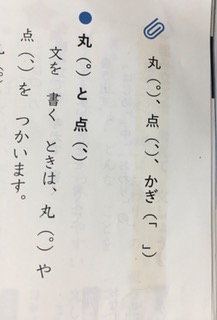 丸(。)、点(、)、かぎ(「 」)
●丸(。)と 点(、)
文を 書く ときは、丸(。)や
点(、)を つかいます。